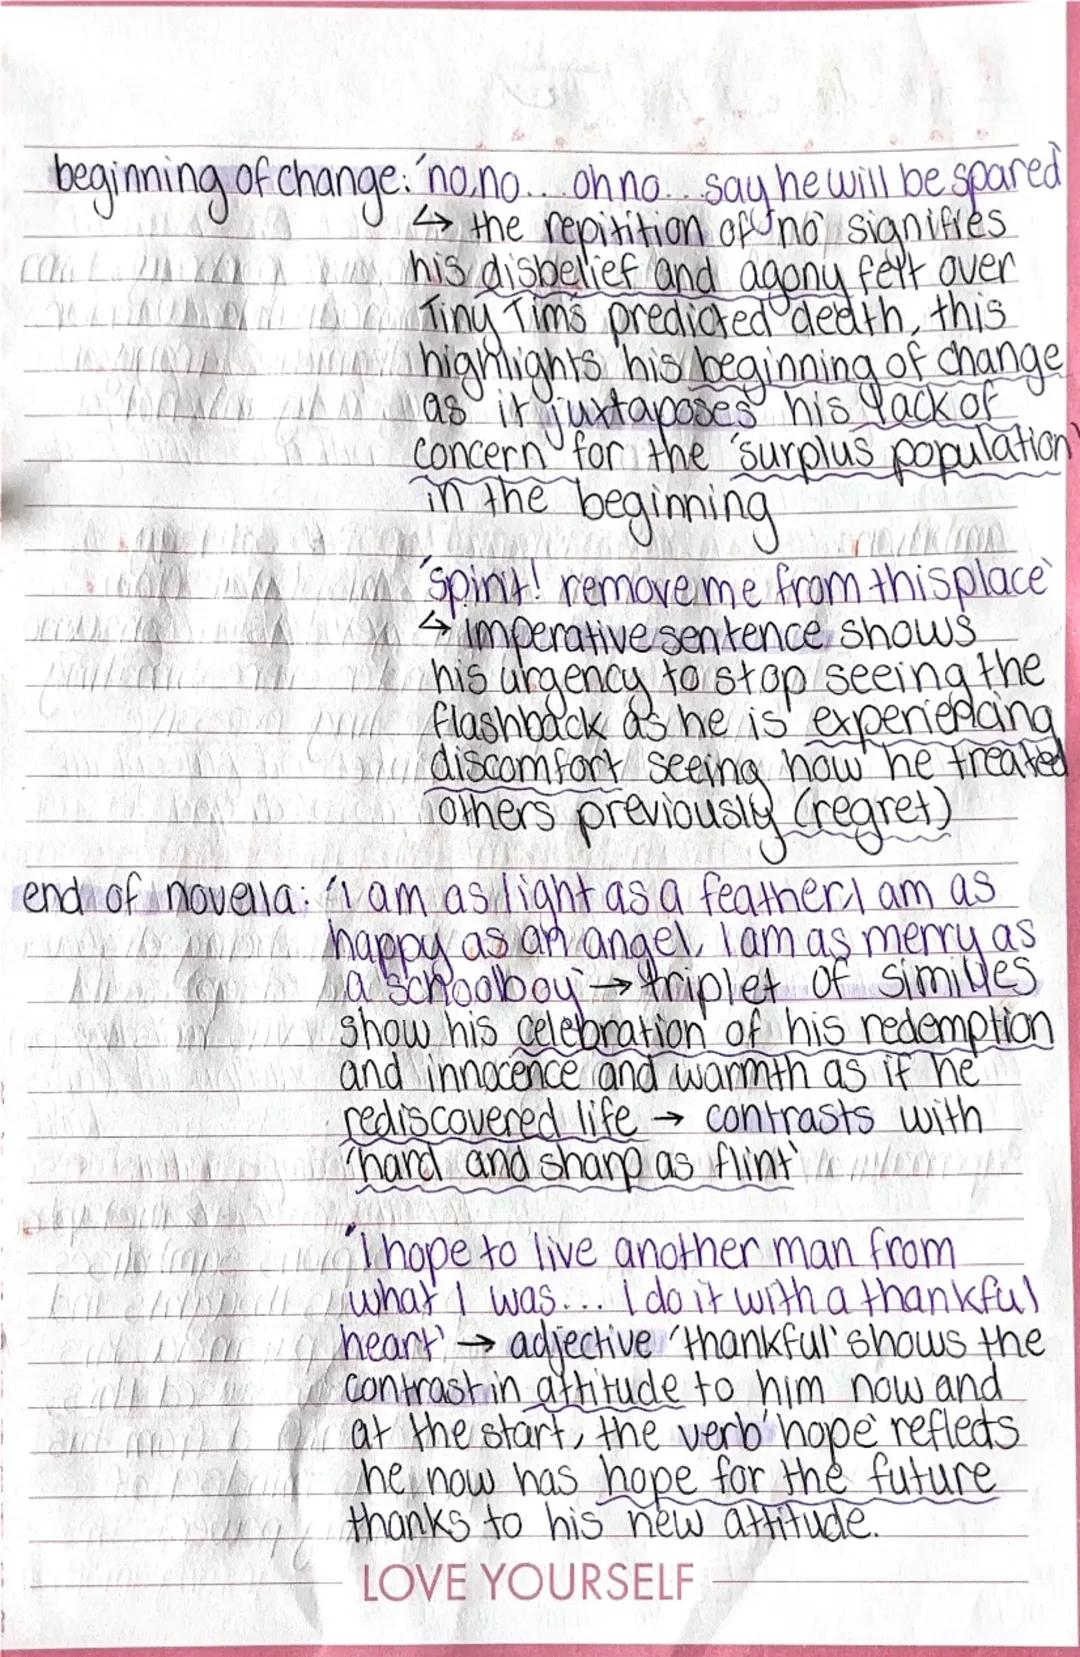 beginning of change: 'no, no... oh no... say he will be spared'
↳ the repitition of 'no' signifies
his disbelief and agony felt over
Tiny Tim's predicted death, this
highlights his beginning of change
as it juxtaposes his lack of
concern for the 'surplus population'
in the beginning
'spirit! remove me from this place'
↳ imperative sentence shows
his urgency to stop seeing the
flashback as he is experiencing
discomfort seeing how he treated
others previously (regret)
end of novella: 'I am as light as a feather, I am as
happy as an angel, I am as merry as
a schoolboy' → triplet of similies
show his celebration of his redemption
and innocence and warmth as if he
rediscovered life → contrasts with
'hard and sharp as flint'
'I hope to live another man from
what I was... I do it with a thankful
heart' → adjective 'thankful' shows the
contrast in attitude to him now and
at the start, the verb 'hope' reflects
he now has hope for the future
thanks to his new attitude.
LOVE YOURSELF